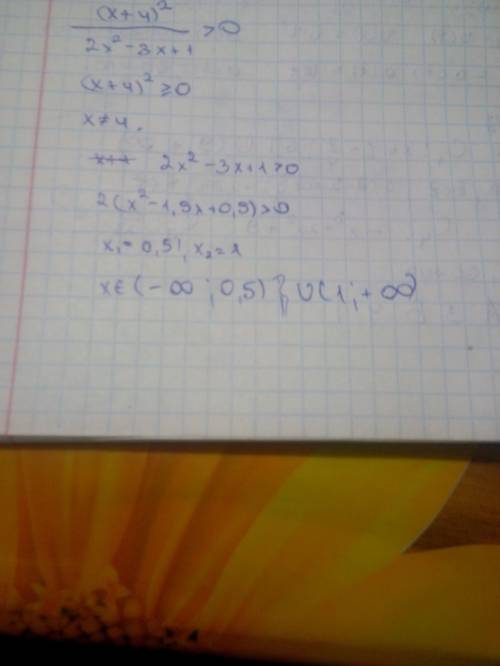 (x+4)²
/ 2x²-3x+1 >0
(x+4)² ≥0
x≠4.
2x²-3x+1>0
2(x²-1,5x+0,5)>0
x₁=0,5; x₂=1
x∈(-∞;0,5)∪(1;+∞)